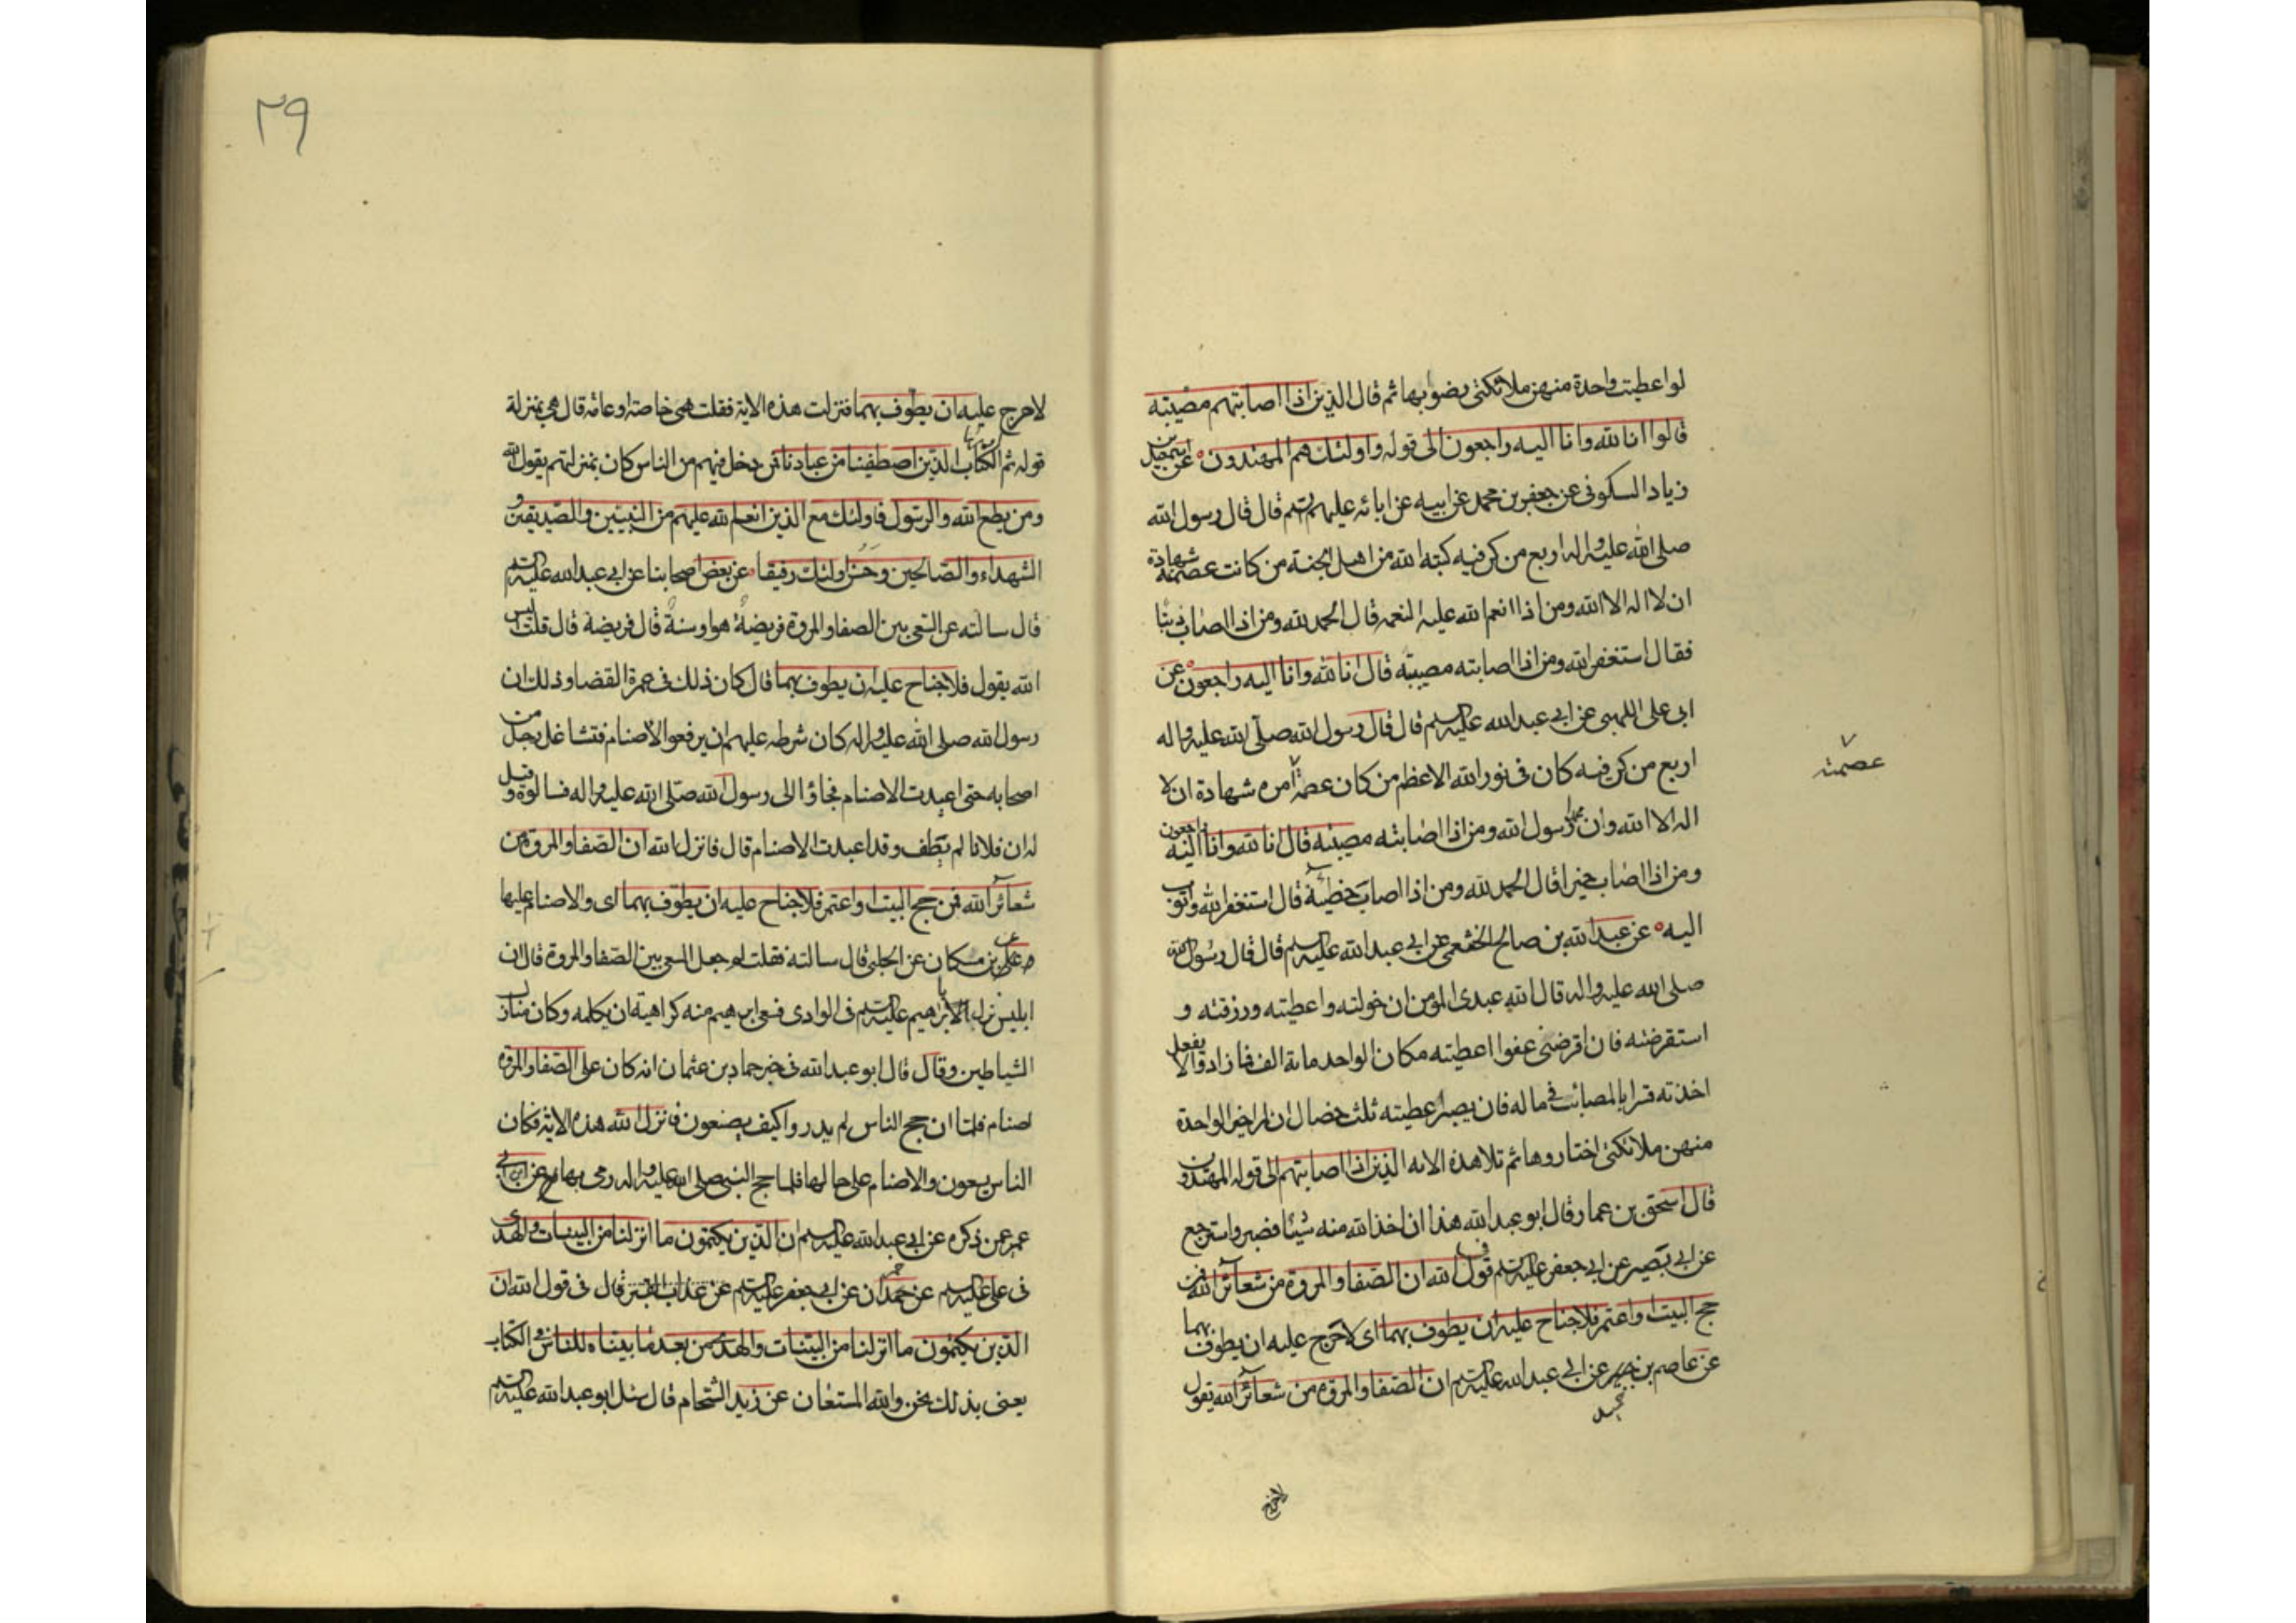 لو اعطيت واحدة منهن ملائكتى رضوا بها ثم قال الذين اذا اصابتهم مصيبة
قالوا انا لله وانا اليه راجعون الى قوله واولئك هم المهتدون عن اسمعيل بن
زياد السكونى عن جعفر بن محمد عن ابيه عن ابائه عليهم السلم قال قال رسول الله
صلى الله عليه واله اربع من كن فيه كتبه الله من اهل الجنة من كانت عصمته شهادة
ان لا اله الا الله ومن اذا انعم الله عليه النعمه قال الحمد لله ومن اذا اصاب ذنبا
فقال استغفر الله ومن اذا اصابته مصيبة قال انا لله وانا اليه راجعون عن
ابى على اللهبى عن ابى عبد الله عليه السلم قال قال رسول الله صلى الله عليه واله
اربع من كن فيه كان فى نور الله الاعظم من كان عصمة امره شهادة ان لا
عصمته
اله الا الله وان محمدا رسول الله ومن اذا اصابته مصيبة قال انا لله وانا اليه راجعون
ومن اذا اصاب خيرا قال الحمد لله ومن اذا اصاب خطيئة قال استغفر الله واتوب
اليه عن عبد الله بن صالح الخثعمى عن ابى عبد الله عليه السلم قال قال رسول الله
صلى الله عليه واله قال الله عبدى المؤمن ان خولته واعطيته ورزقته و
استقرضته فان اقرضنى عفوا اعطيته مكان الواحد مائة الف فما زاد وان لا يفعل
اخذته قسرا بالمصائب فى ماله فان يصبر اعطيته ثلث خصال ان اخير الواحدة
منهن ملائكتى اختاروها ثم تلا هذه الايه الذين اذا اصابتهم الى قوله المهتدون
قال اسحق بن عمار قال ابو عبد الله هذا ان اخذ الله منه شيئا فصبر واسترجع
عن ابى بصير عن ابى جعفر عليه السلم فى قول الله ان الصفا والمروة من شعائر الله فمن
حج البيت او اعتمر فلا جناح عليه ان يطوف بهما اى لا حرج عليه ان يطوف بهما
عن عاصم بن عن ابى عبد الله عليه السلم ان الصفا والمروة من شعائر الله يقول
لا حرج
٢٩
لا حرج عليه ان يطوف بهما فنزلت هذه الاية فقلت هى خاصة او عامة قال هى بمنزلة
قوله ثم اورثنا الكتاب الذين اصطفينا من عبادنا فمن دخل فيهم من الناس كان بمنزلتهم يقول الله
ومن يطع الله والرسول فاولئك مع الذين انعم الله عليهم من النبيين والصديقين و
الشهداء والصالحين وحسن اولئك رفيقا عن بعض اصحابنا عن ابى عبد الله عليه السلم
قال سالته عن السعى بين الصفا والمروة فريضة هو او سنة قال فريضة قال قلت اليس
الله يقول فلا جناح عليه ان يطوف بهما قال كان ذلك فى عمرة القضا وذلك ان
رسول الله صلى الله عليه واله كان شرطه عليهم ان يرفعوا الاصنام فتشاغل رجل من
اصحابه حتى اعيدت الاصنام فجاؤا الى رسول الله صلى الله عليه واله فسالوه وقيل
له ان فلانا لم يطف وقد اعيدت الاصنام قال فانزل الله ان الصفا والمروة من
شعائر الله فمن حج البيت او اعتمر فلا جناح عليه ان يطوف بهما اى والاصنام عليها
بن مسكان عن الحلبى قال سالته فقلت لم جعل السعى بين الصفا والمروة قال ان
ابليس لابراهيم عليه السلم فى الوادى فسعى ابرهيم منه كراهية ان يكلمه وكان منازل
الشياطين وقال قال ابو عبد الله فى خبر حماد بن عثمان انه كان على الصفا والمروة
اصنام فلما ان حج الناس لم يدروا كيف يصنعون فانزل الله هذه الاية فكان
الناس يسعون والاصنام على حالها فلما حج النبى صلى الله عليه واله رمى بها عن ابن ابى
عمير عمن ذكره عن ابى عبد الله عليه السلم ان الذين يكتمون ما انزلنا من البينات والهدى
فى على عليه السلم عن حمران عن ابى جعفر عليه السلم قال فى قول الله ان
الذين يكتمون ما انزلنا من البينات والهدى من بعد ما بيناه للناس فى الكتاب
يعنى بذلك نحن والله المستعان عن زيد الشحام قال سئل ابو عبد الله عليه السلم